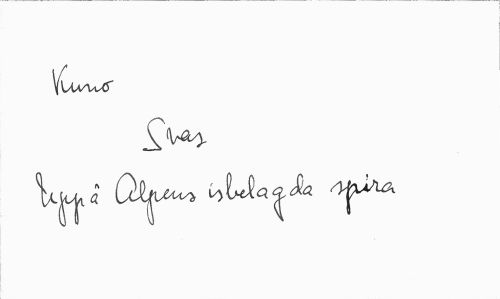 Kuno
Svas
Uppå Alpens isbelagda spira